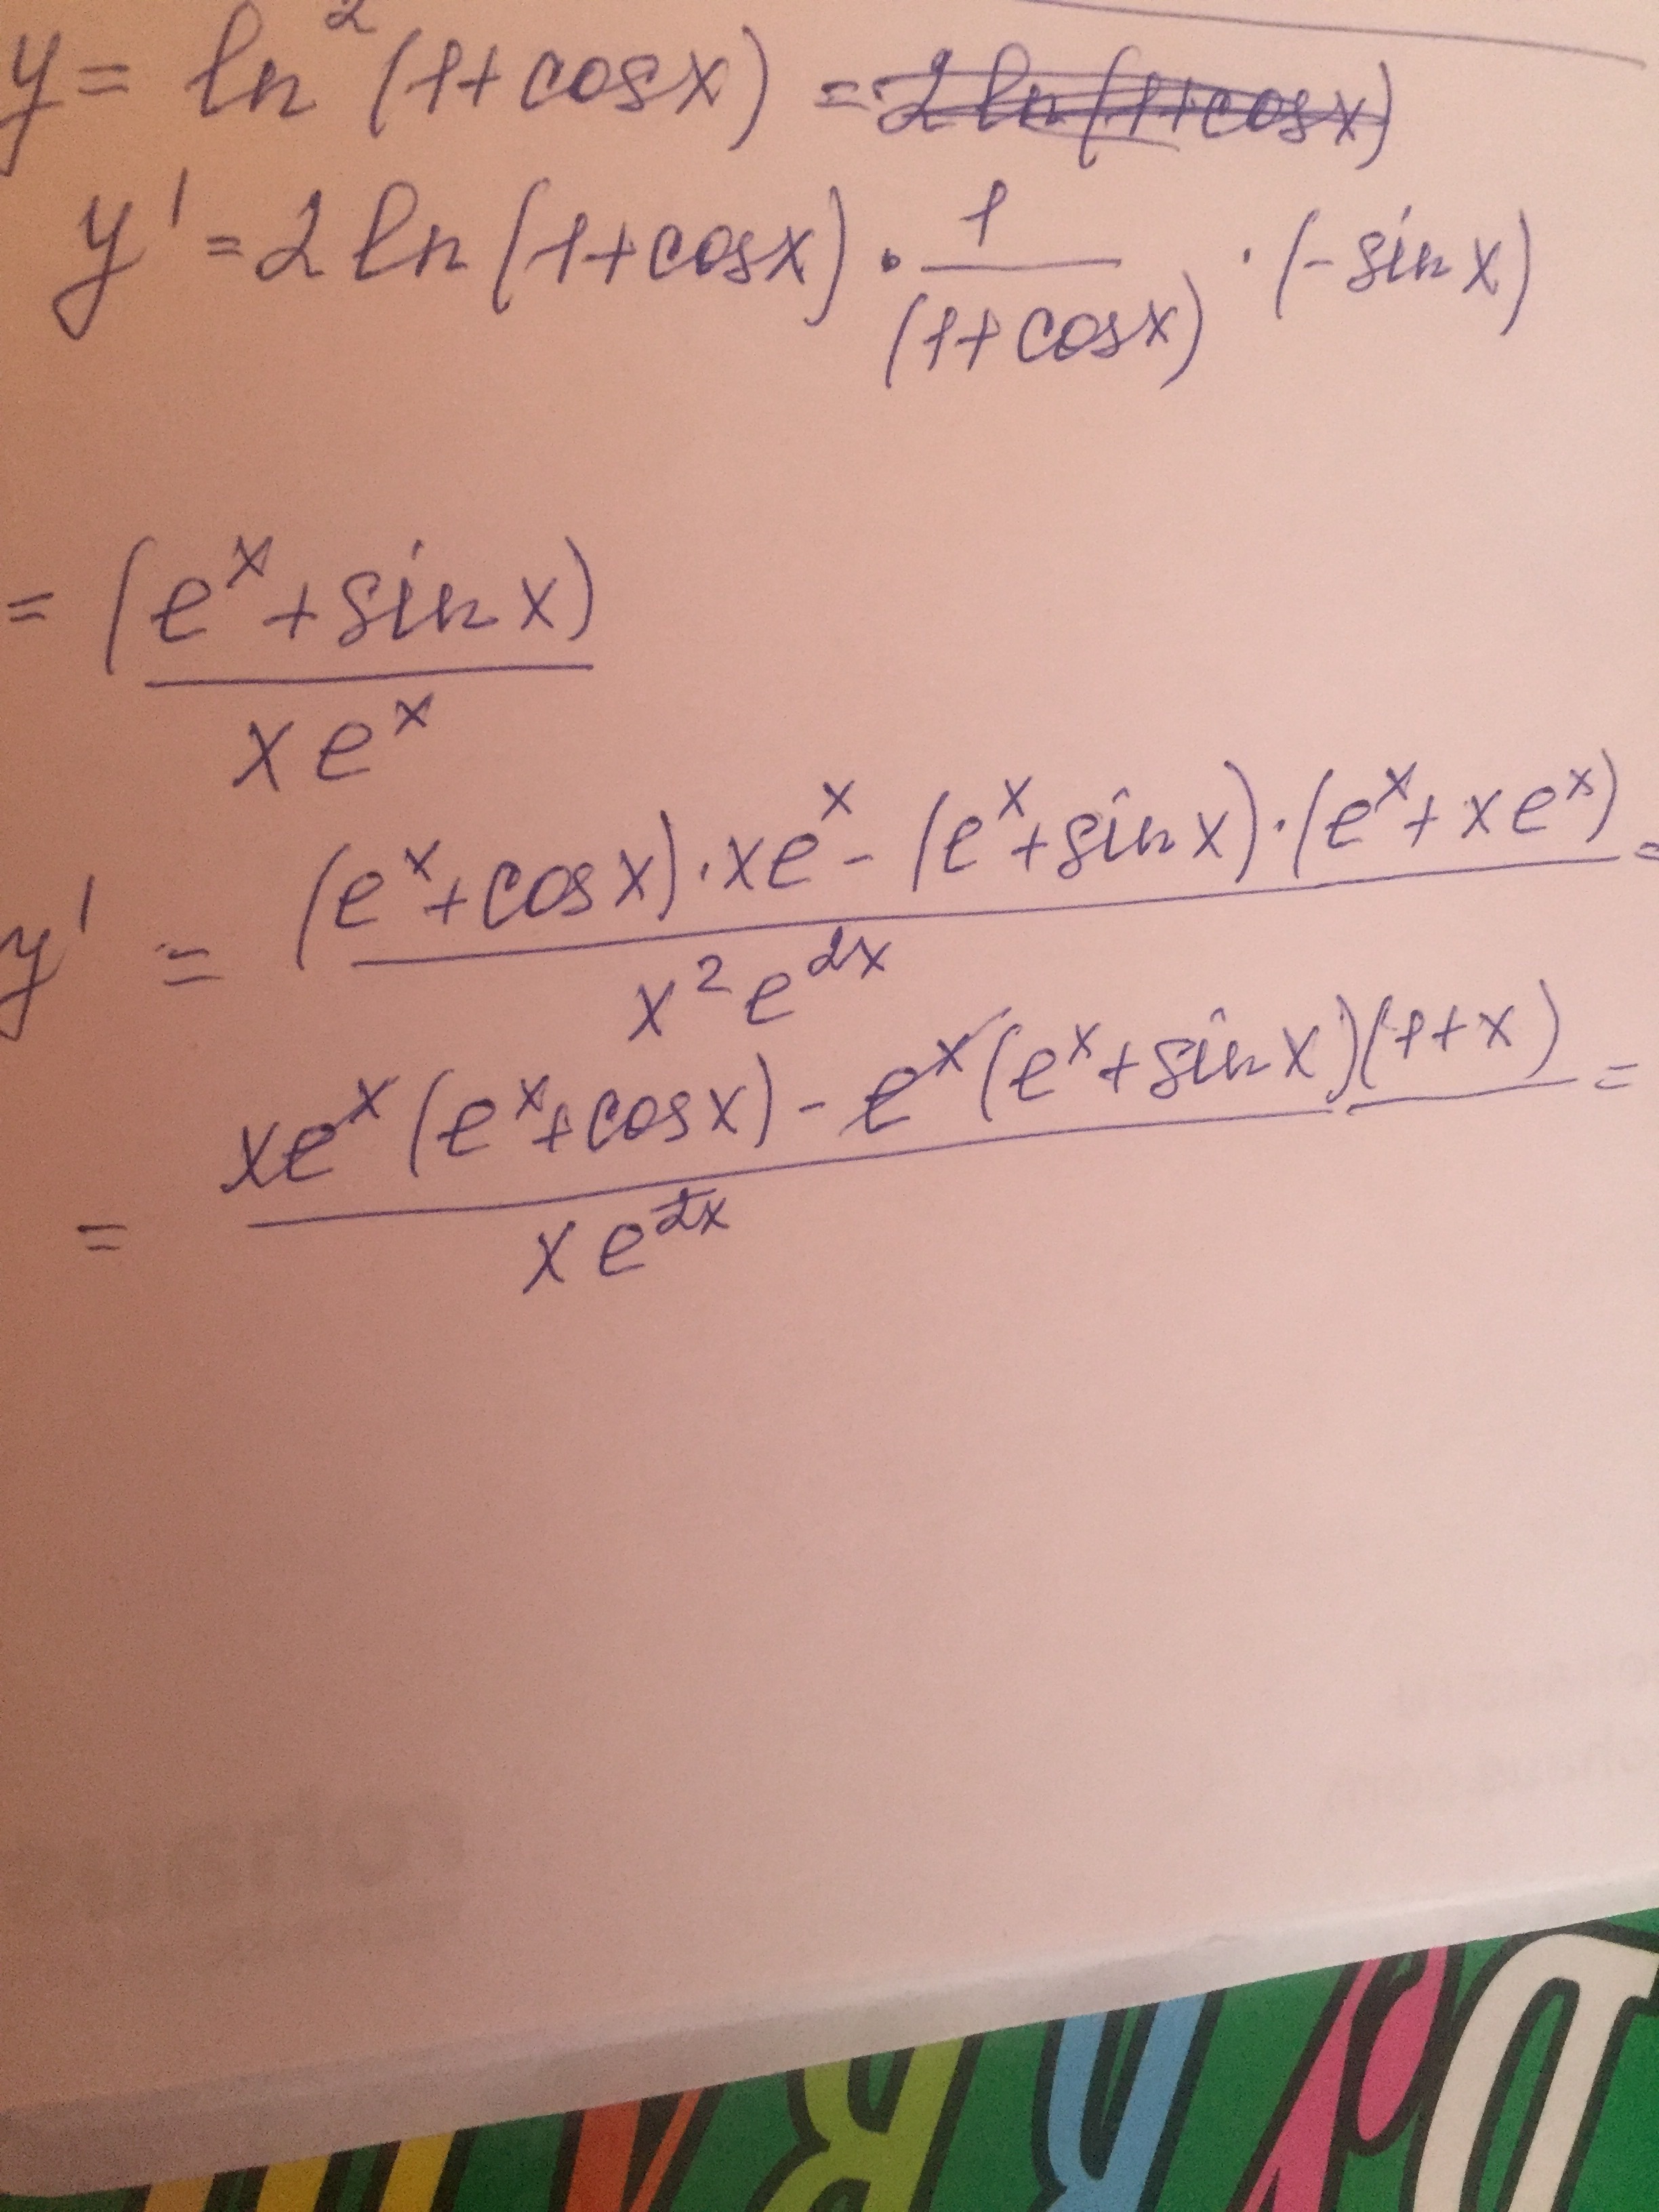 y = ln²(1+cosx) = 2ln(1+cosx)
y' = 2ln(1+cosx) · 1/(1+cosx) · (-sinx)
= (e^x+sinx)/(xe^x)
y' = ((e^x+cosx)·xe^x - (e^x+sinx)·(e^x+xe^x))/(x²e^(2x)) =
= (xe^x(e^x+cosx) - e^x(e^x+sinx)(1+x))/(xe^(2x)) =